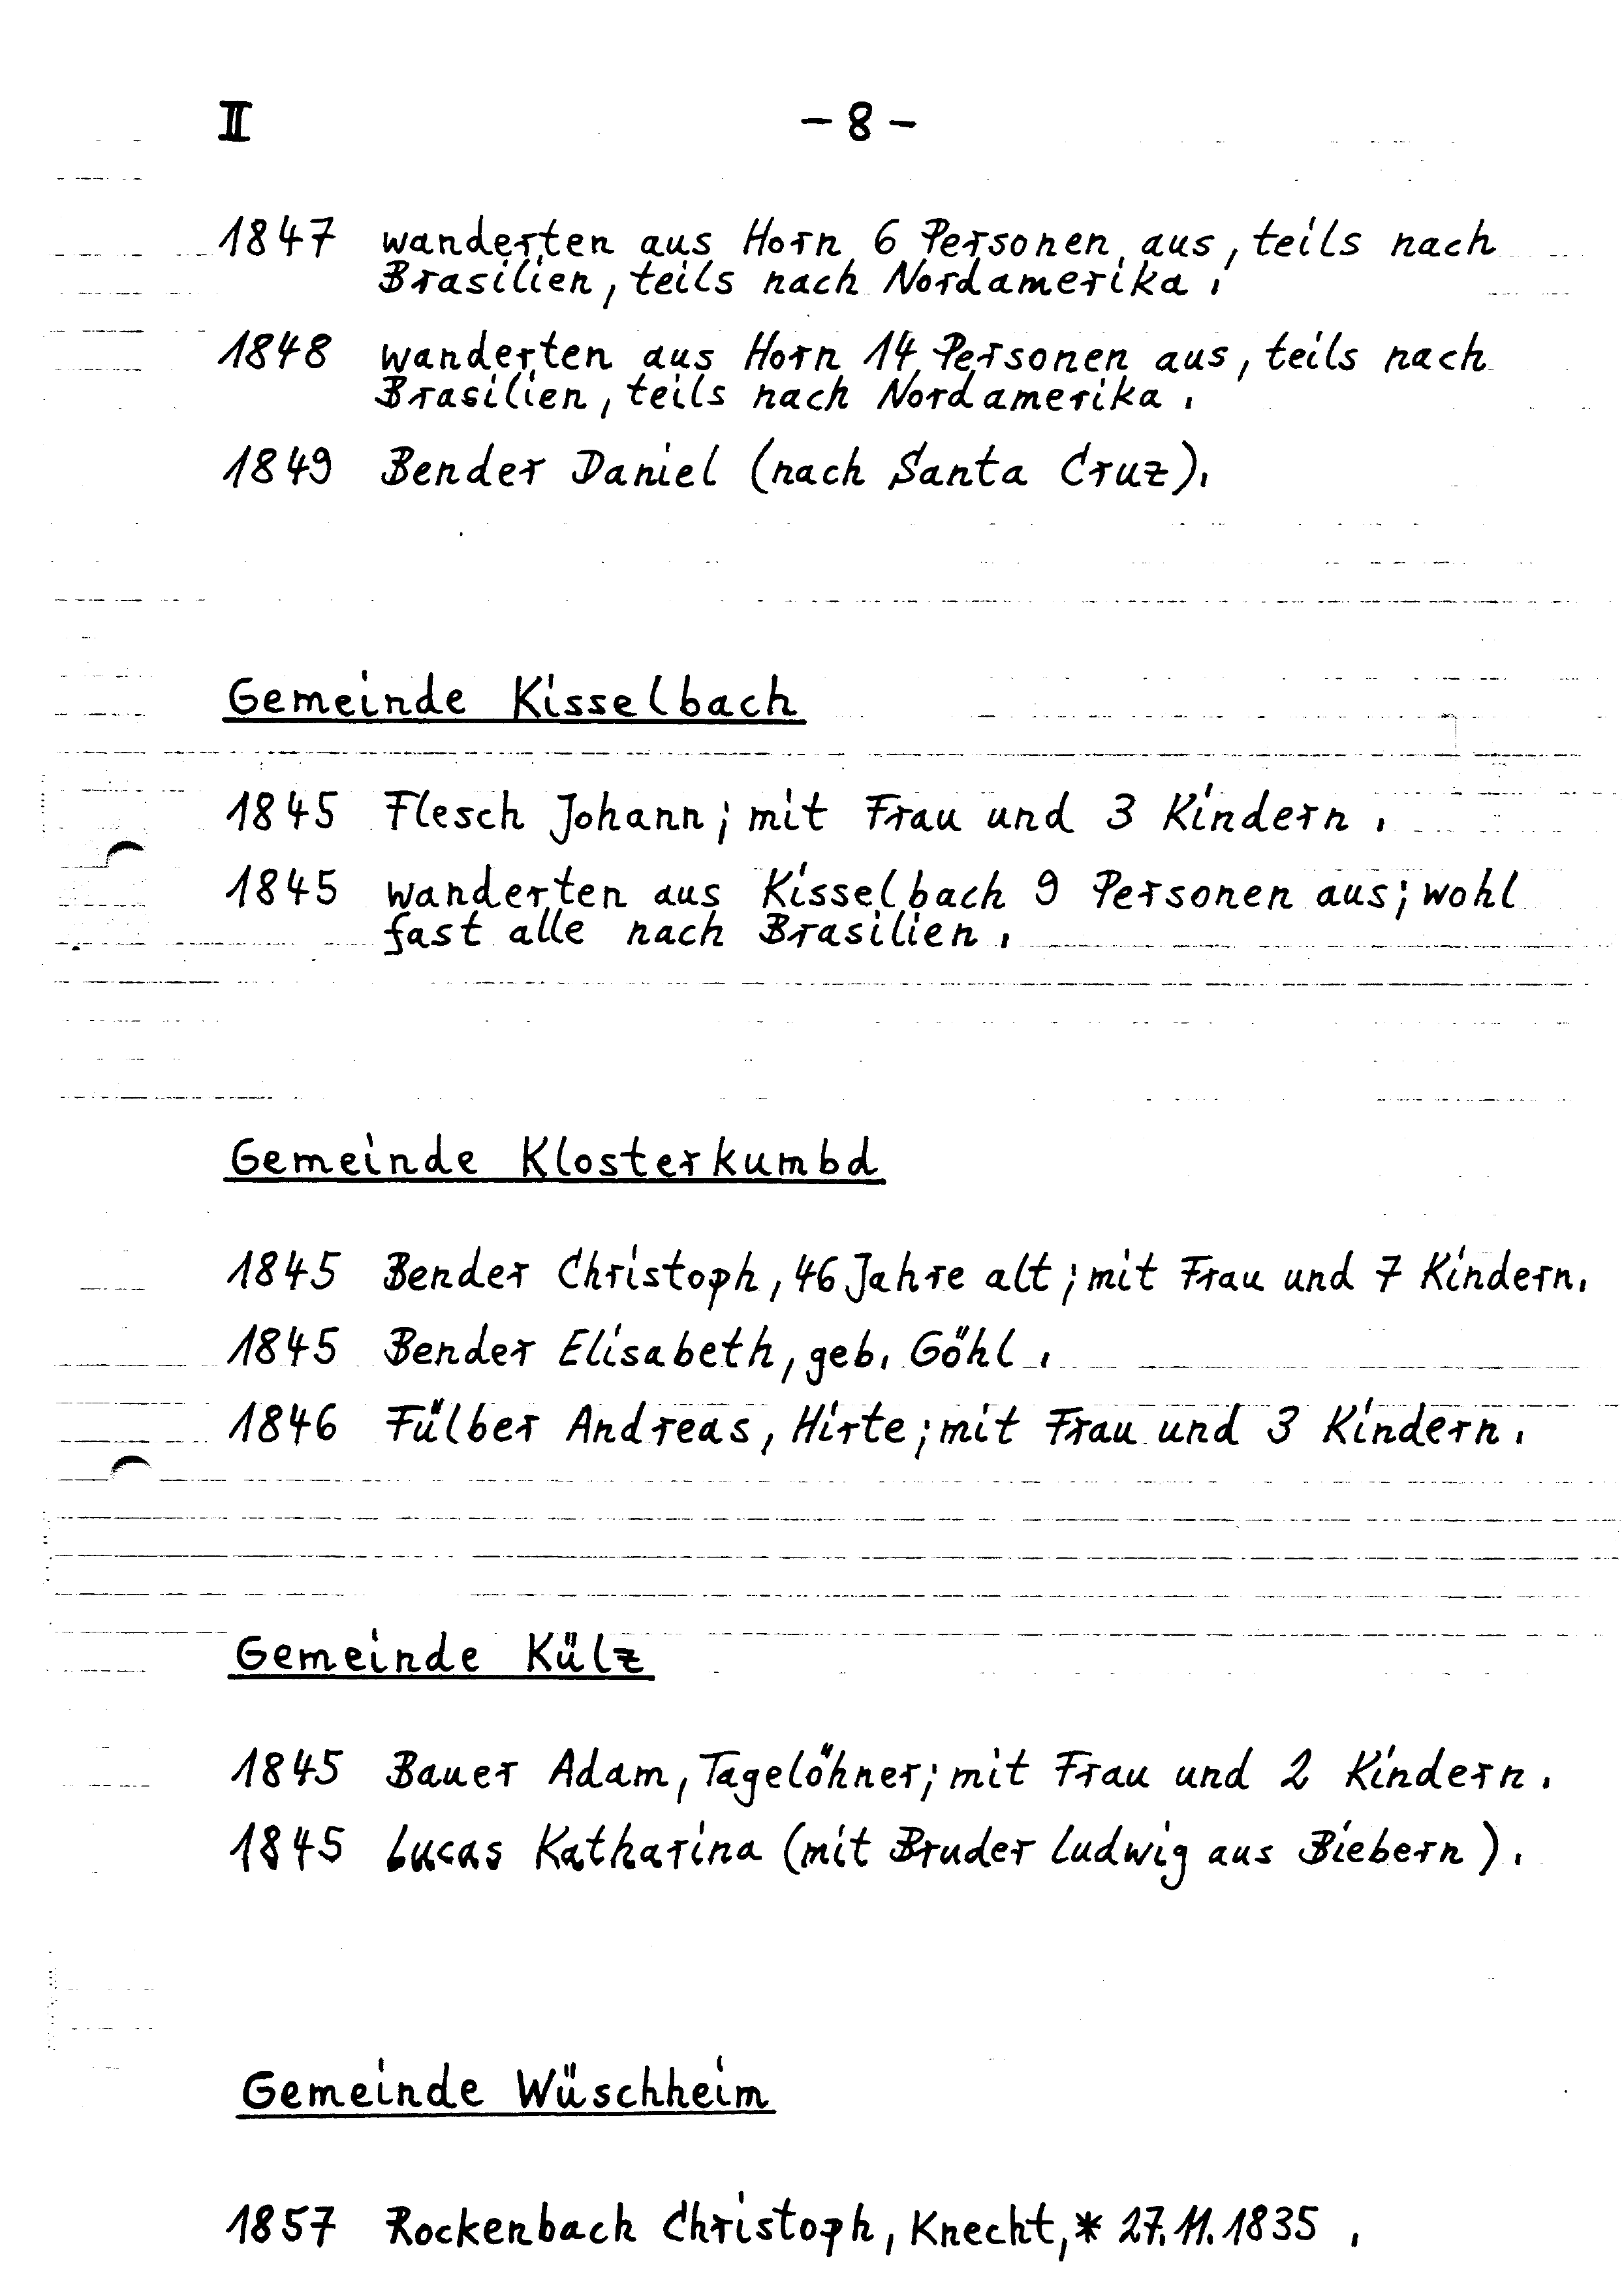 II - 8 -
1847 wanderten aus Horn 6 Personen aus, teils nach
Brasilien, teils nach Nordamerika.
1848 wanderten aus Horn 14 Personen aus, teils nach
Brasilien, teils nach Nordamerika.
1849 Bender Daniel (nach Santa Cruz).
Gemeinde Kisselbach
1845 Flesch Johann; mit Frau und 3 Kindern.
1845 wanderten aus Kisselbach 9 Personen aus; wohl
fast alle nach Brasilien.
Gemeinde Klosterkumbd
1845 Bender Christoph, 46 Jahre alt; mit Frau und 7 Kindern.
1845 Bender Elisabeth, geb. Göhl.
1846 Fülber Andreas, Hirte; mit Frau und 3 Kindern.
Gemeinde Külz
1845 Bauer Adam, Tagelöhner; mit Frau und 2 Kindern.
1845 Lucas Katharina (mit Bruder Ludwig aus Biebern).
Gemeinde Wüschheim
1857 Rockenbach Christoph, Knecht, * 27.11.1835.